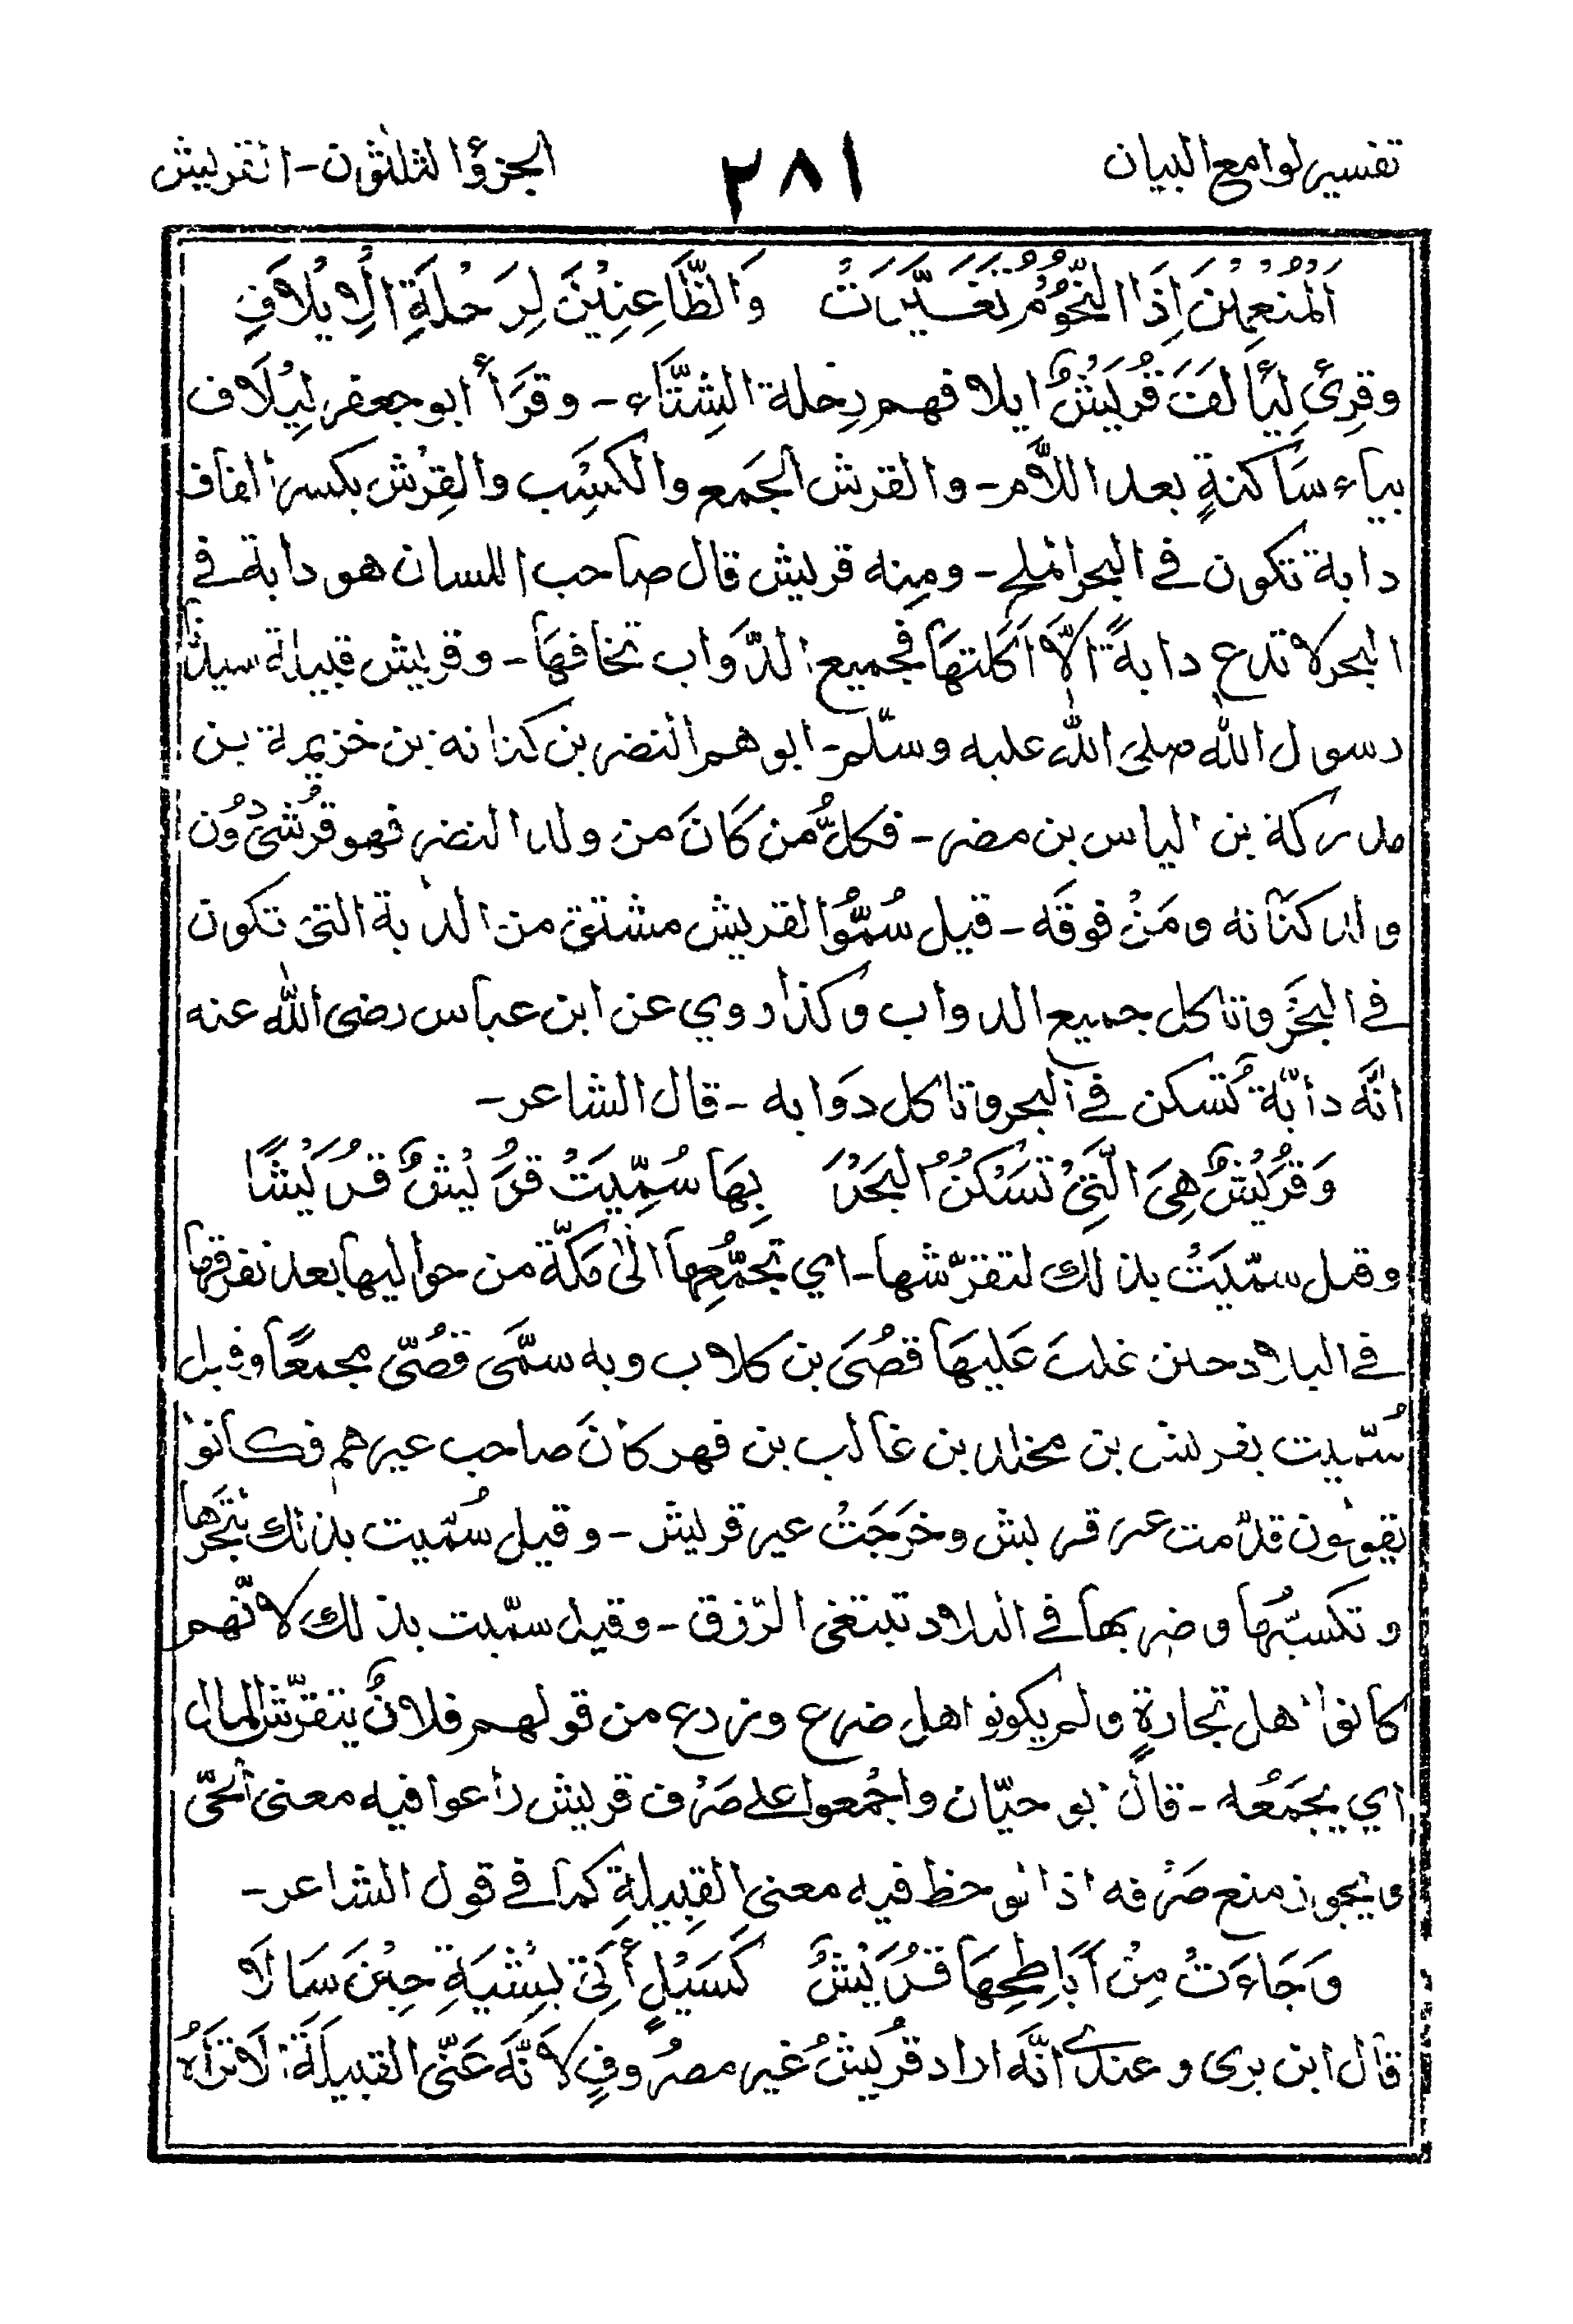 تفسير لوامع البيان ٢٨١ الجزؤ الثلثون - القريش
اَلْمُنْعِمِيْنَ اِذَا النُّجُوْمُ تَغَيَّرَتْ وَالظَّاعِنِيْنَ لِرِحْلَةِ الْاِيْلَافِ
وقرئ لِيَأْلَفَ قُرَيْشٌ ايلافهم رحلة الشِتَّاء - وقَرَأ ابو جعفر لِيْلَاف
بياء سَاكنةٍ بعد اللَّام - والقرش الجَمع والكَسْب والقِرْش بكسر القاف
دابة تكون في البحر الملح - ومِنه قريش قال صاحب اللسان هو دابة في
البحر لا تدع دابةً الَّا اَكَلتهَا فجميع الدَّوَاب تخافهَا - وقريش قبيلة سيدنَا
رسول الله صلى الله عليه وسلّم - ابوهم النضر بن كنانه بن خزيمة بن
مدركة بن الياس بن مضر - فكلُّ من كَانَ من ولد النضر فهو قُرشيٌ دُون
ولد كنَانه ومَنْ فوقَه - قيل سُمُّوْا لقريش مشتق من الدابة التي تكون
في البَحْر وتاكل جميع الدواب وكذا روي عن ابن عباس رضي الله عنه
انَّه دابّة تُسكن في البحر وتاكل دوَابه - قال الشاعر -
وَقُرَيْشٌ هِيَ الَّتِيْ تَسْكُنُ الْبَحْرَ بِهَا سُمِّيَتْ قُرَيْشٌ قُرَيْشًا
وقيل سمّيَتْ بذلك لتقرّشها - اي تجَمُّعِهَا الىٰ مَكّة من حواليها بعد تفرقها
في البلاد حين غلبَ عَلَيهَا قصُيَ بن كلاب وبه سمَّى قصُيّ مجمعًا وقيل
سُمّيت بقريش بن مخلد بن غالب بن فهر كانَ صاحب عيرهم فكانوا
يقولون قدّمت عير قريش وخَرَجَتْ عير قريش - وقيل سُمّيت بذلك بتَجَرُّها
وتكسبُّهَا وضربها في البلاد تبتغي الرّزق - وقيل سمّيت بذلك لانّهم
كانوا اهل تجارةٍ ولم يكونو اهل ضرع وزرع من قولهم فلانٌ يتقرّش المال
اي يجمَعُه - قال ابو حيّان واجُمعوا على صَرْف قريش راعوا فيه معنى الحّي
ويجوز منع صَرْفه اذا لوحظ فيه معنى القبِيلةِ كما في قول الشاعر -
وَجَاءَتْ مِنْ اَبَاطِحِهَا قُرَيْشُ كَسَيْلِ أَتِيِّ بِيْشَةَ حِيْنَ سَالَا
قال ابن بري وعندي انَّه اراد قُرَيْشُ غير مصرُوفٍ لاَنَّه عَنّى القبيلَةَ: لَاتَرَاهُ